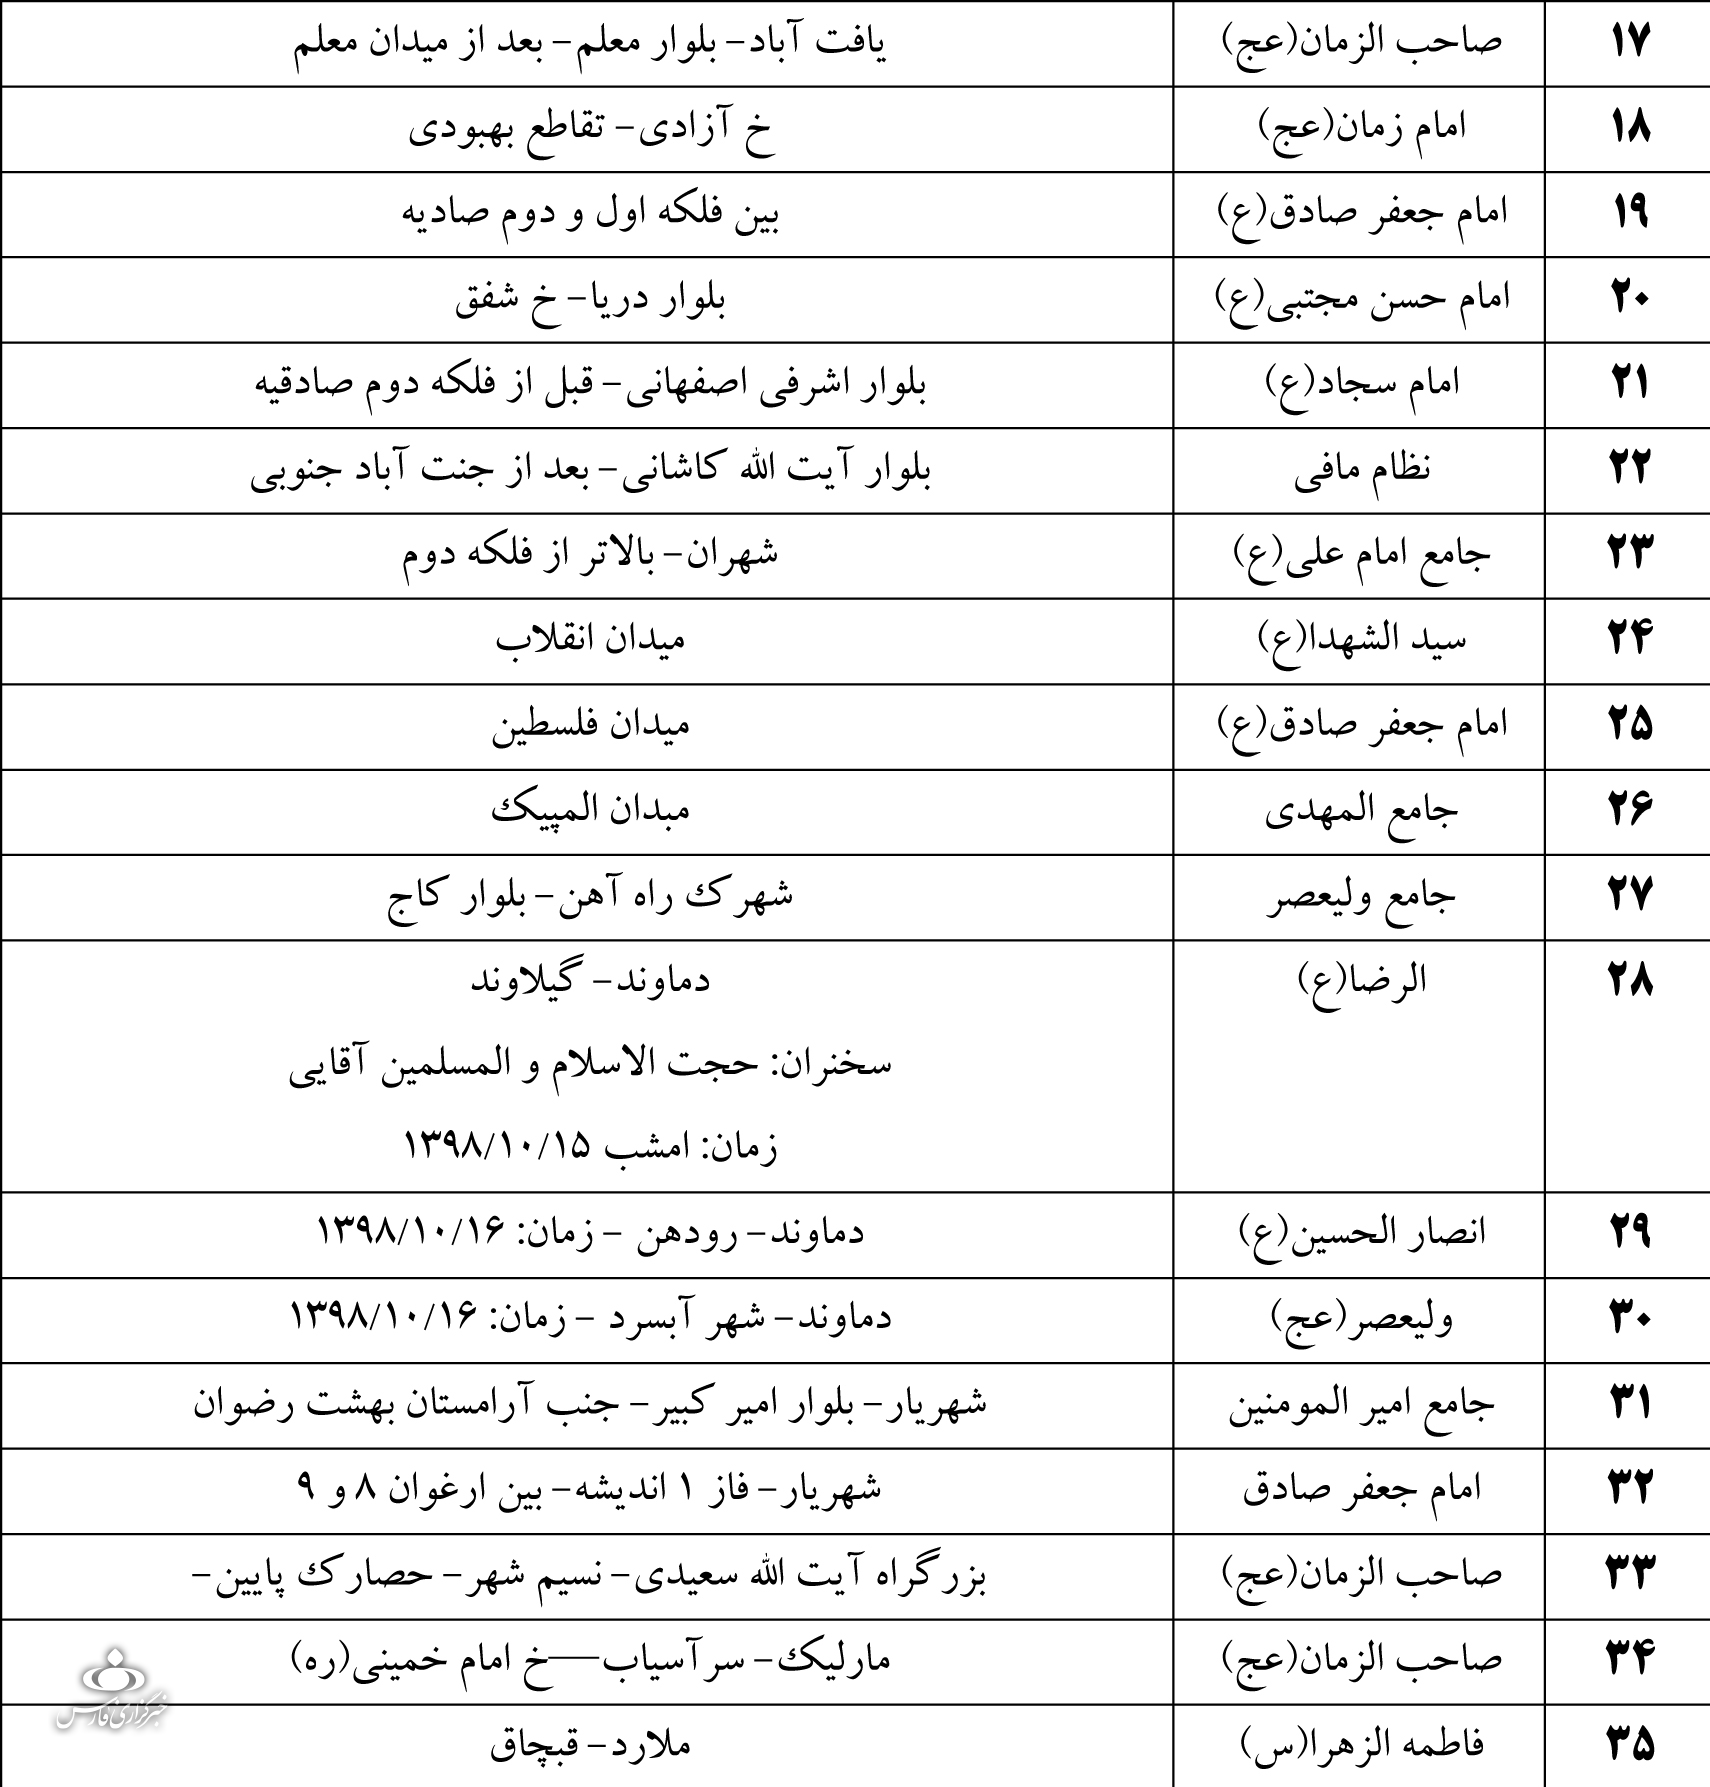 ۱۷ صاحب الزمان(عج) یافت آباد- بلوار معلم- بعد از میدان معلم
۱۸ امام زمان(عج) خ آزادی- تقاطع بهبودی
۱۹ امام جعفر صادق(ع) بین فلکه اول و دوم صادیه
۲۰ امام حسن مجتبی(ع) بلوار دریا- خ شفق
۲۱ امام سجاد(ع) بلوار اشرفی اصفهانی- قبل از فلکه دوم صادقیه
۲۲ نظام مافی بلوار آیت الله کاشانی- بعد از جنت آباد جنوبی
۲۳ جامع امام علی(ع) شهران- بالاتر از فلکه دوم
۲۴ سید الشهدا(ع) میدان انقلاب
۲۵ امام جعفر صادق(ع) میدان فلسطین
۲۶ جامع المهدی مبدان المپیک
۲۷ جامع ولیعصر شهرک راه آهن- بلوار کاج
۲۸ الرضا(ع) دماوند- گیلاوند
سخنران: حجت الاسلام و المسلمین آقایی
زمان: امشب ۱۳۹۸/۱۰/۱۵
۲۹ انصار الحسین(ع) دماوند- رودهن - زمان: ۱۳۹۸/۱۰/۱۶
۳۰ ولیعصر(عج) دماوند- شهر آبسرد - زمان: ۱۳۹۸/۱۰/۱۶
۳۱ جامع امیر المومنین شهریار- بلوار امیر کبیر- جنب آرامستان بهشت رضوان
۳۲ امام جعفر صادق شهریار- فاز ۱ اندیشه- بین ارغوان ۸ و ۹
۳۳ صاحب الزمان(عج) بزرگراه آیت الله سعیدی- نسیم شهر- حصارک پایین-
۳۴ صاحب الزمان(عج) مارلیک- سرآسیاب—خ امام خمینی(ره)
۳۵ فاطمه الزهرا(س) ملارد- قبچاق
خبرگزاری فارس